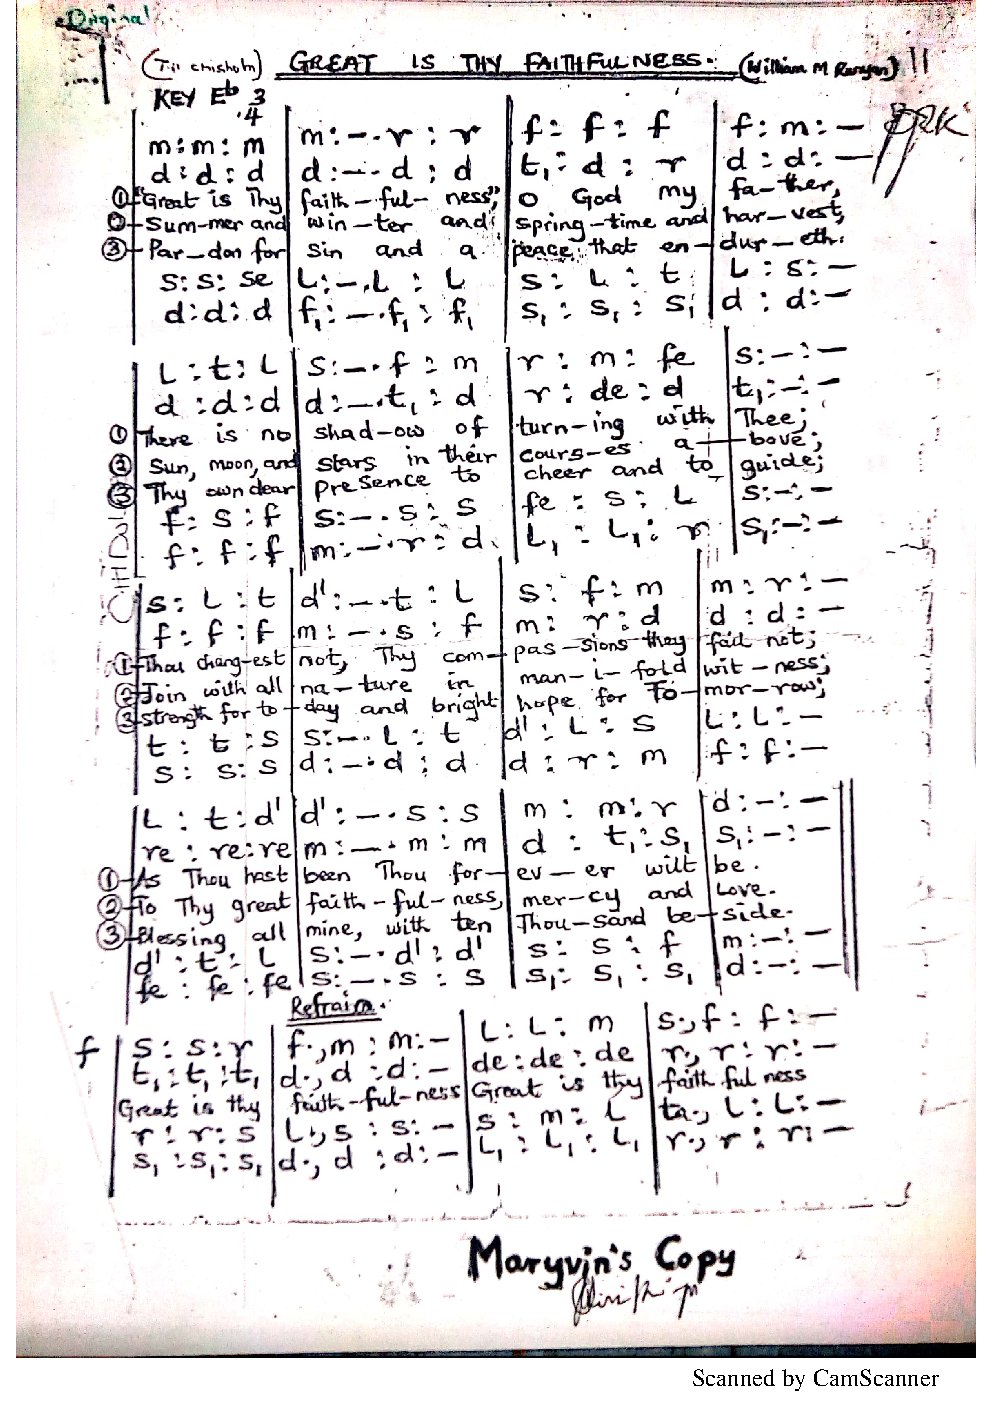 Original
(TII chisholm) GREAT IS THY FAITHFULNESS. (William M Runyan)
KEY Eb 3/4
m:m:m | m:-.r:r | f:f:f | f:m:-
d:d:d | d:-.d:d | t₁:d:r | d:d:-
① "Great is Thy faith-ful-ness," O God my fa-ther,
② Sum-mer and win-ter and spring-time and har-vest,
③ Par-don for sin and a peace that en-dur-eth.
s:s:se | L:-.L:L | s:L:t | L:s:-
d:d:d | f₁:-.f₁:f₁ | s₁:s₁:s₁ | d:d:-
L:t:L | s:-.f:m | r:m:fe | s:-:-
d:d:d | d:-.t₁:d | r:de:d | t₁:-:-
① There is no shad-ow of turn-ing with Thee;
② Sun, moon, and stars in their cours-es a-bove;
③ Thy own dear presence to cheer and to guide;
f:s:f | s:-.s:s | fe:s:L | s:-:-
f:f:f | m:-.r:d | L₁:L₁:r | s₁:-:-
s:L:t | d':-.t:L | s:f:m | m:r:-
f:f:f | m:-.s:f | m:r:d | d:d:-
① Thou chang-est not, Thy com-pas-sions they fail not;
② Join with all na-ture in man-i-fold wit-ness;
③ strength for to-day and bright hope for To-mor-row;
t:t:s | s:-.L:t | d':L:s | L:L:-
s:s:s | d:-.d:d | d:r:m | f:f:-
L:t:d' | d':-.s:s | m:m:r | d:-:-
re:re:re | m:-.m:m | d:t₁:s₁ | s₁:-:-
① As Thou hast been Thou for-ev-er wilt be.
② To Thy great faith-ful-ness, mer-cy and Love.
③ Blessing all mine, with ten Thou-sand be-side.
d':t:L | s:-.d':d' | s:s:f | m:-:-
fe:fe:fe | s:-.s:s | s₁:s₁:s₁ | d:-:-
Refrain.
f | s:s:r | f.,m:m:- | L:L:m | s.,f:f:-
t₁:t₁:t₁ | d.,d:d:- | de:de:de | r.,r:r:-
Great is thy faith-ful-ness Great is thy faith ful ness
r:r:s | L.,s:s:- | s:m:L | ta.,L:L:-
s₁:s₁:s₁ | d.,d:d:- | L₁:L₁:L₁ | r.,r:r:-
Maryvin's Copy
Scanned by CamScanner